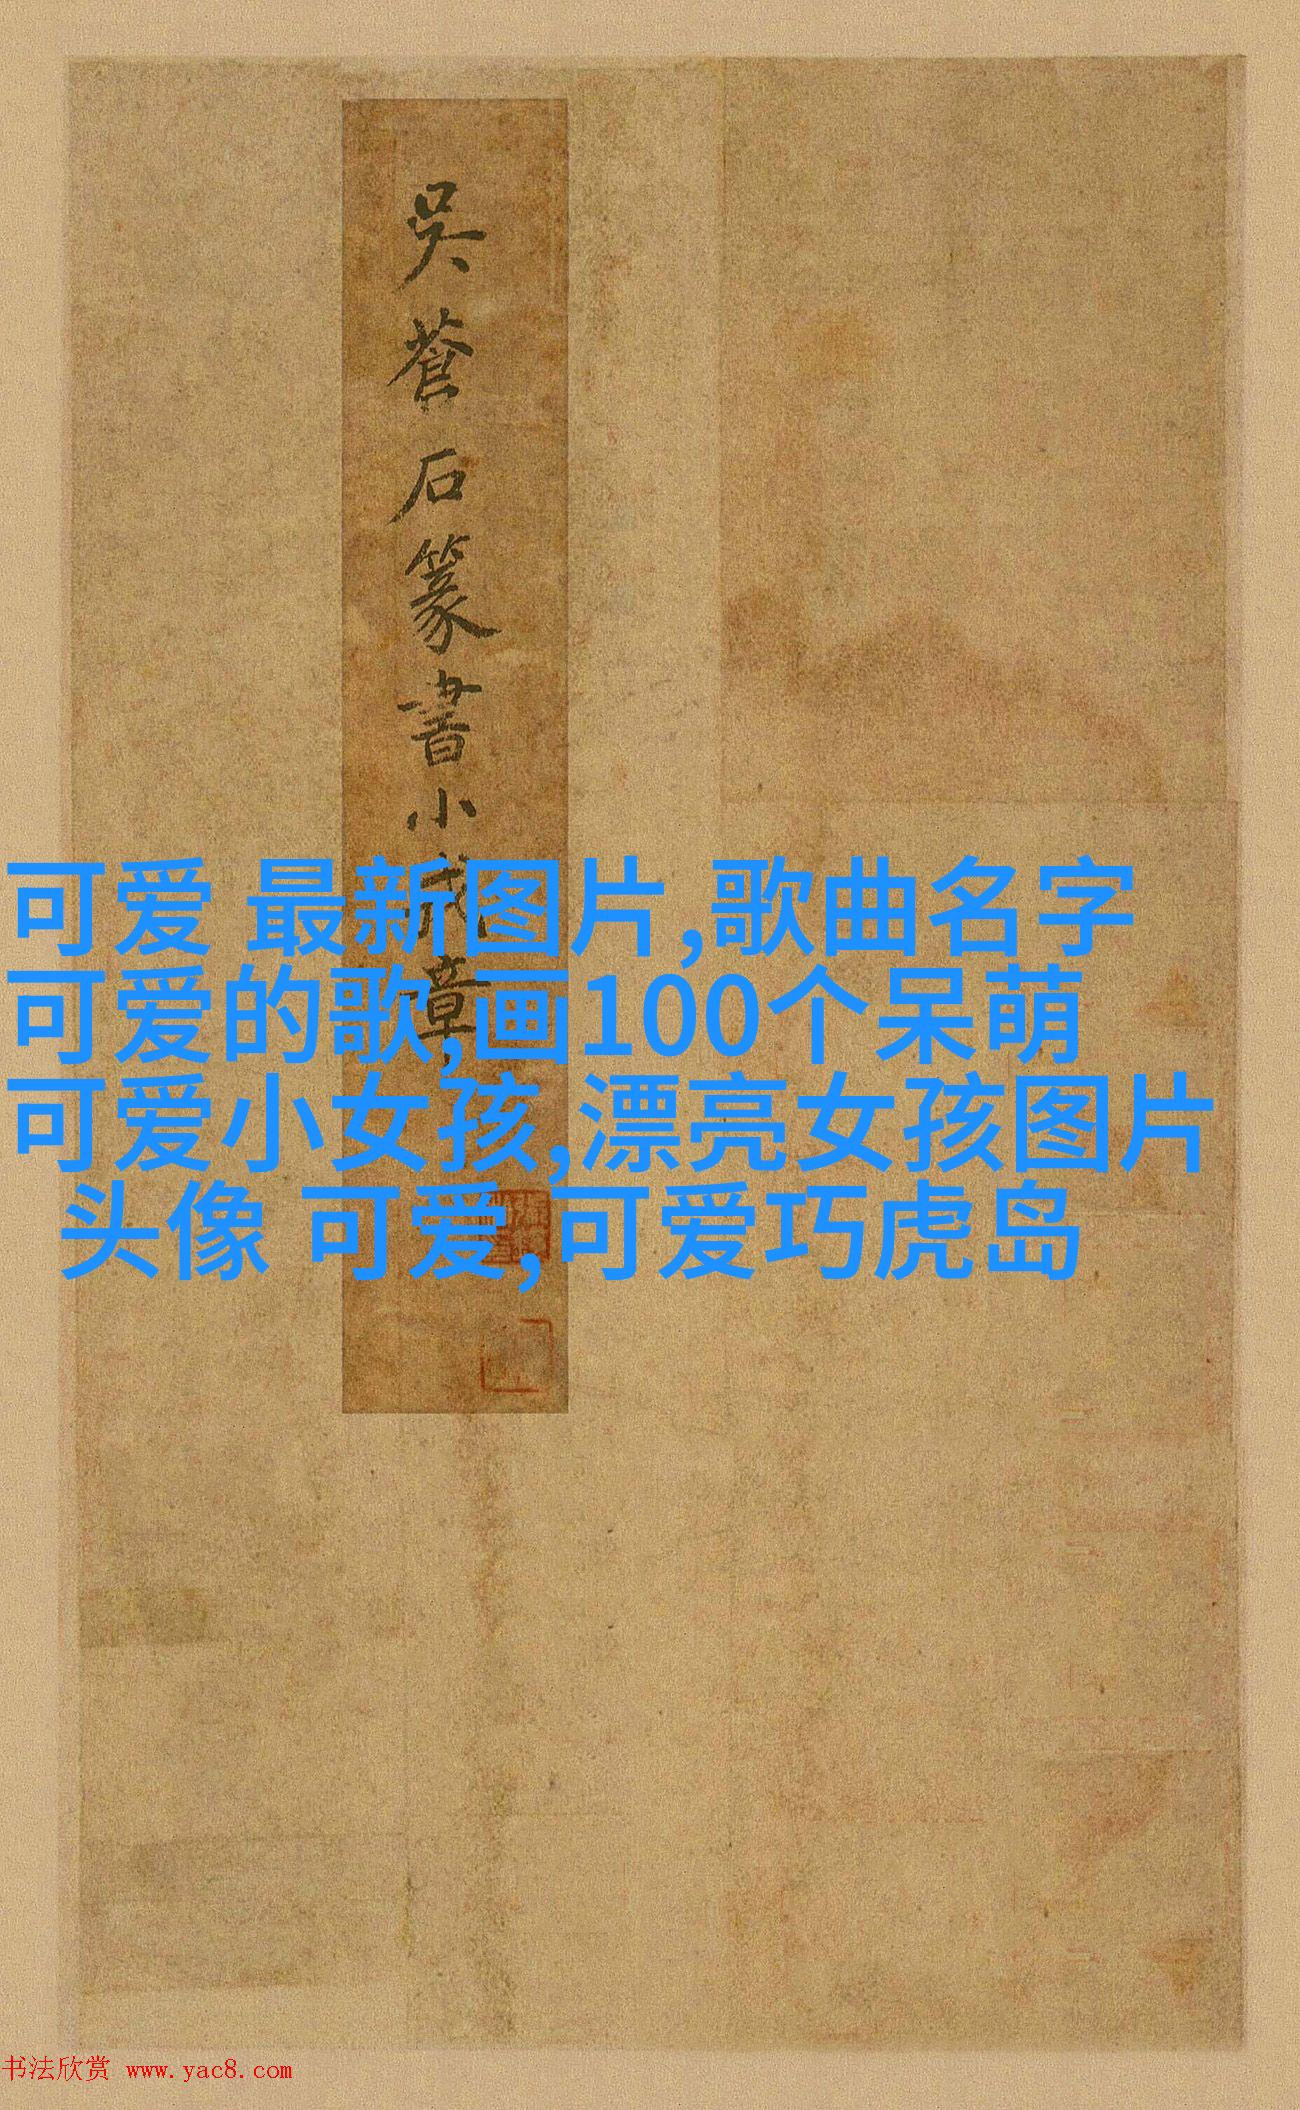 吳蒼石篆書小戎章
可爱 最新图片,歌曲名字
可爱的歌,画100个呆萌
可爱小女孩,漂亮女孩图片
头像 可爱,可爱巧虎岛
书法欣赏 www.yac8.com